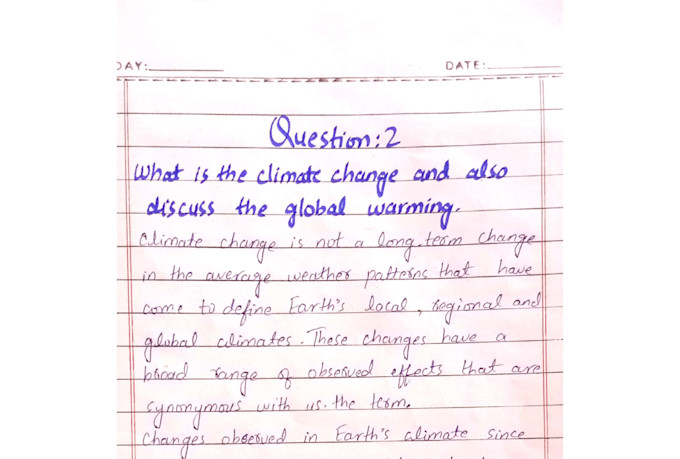 DAY: DATE:
Question:2
What is the climate change and also
discuss the global warming.
Climate change is not a long term change
in the average weather patterns that have
come to define Earth's local, regional and
global climates. These changes have a
broad range of observed effects that are
synonymous with us. the term.
Changes observed in Earth's climate since